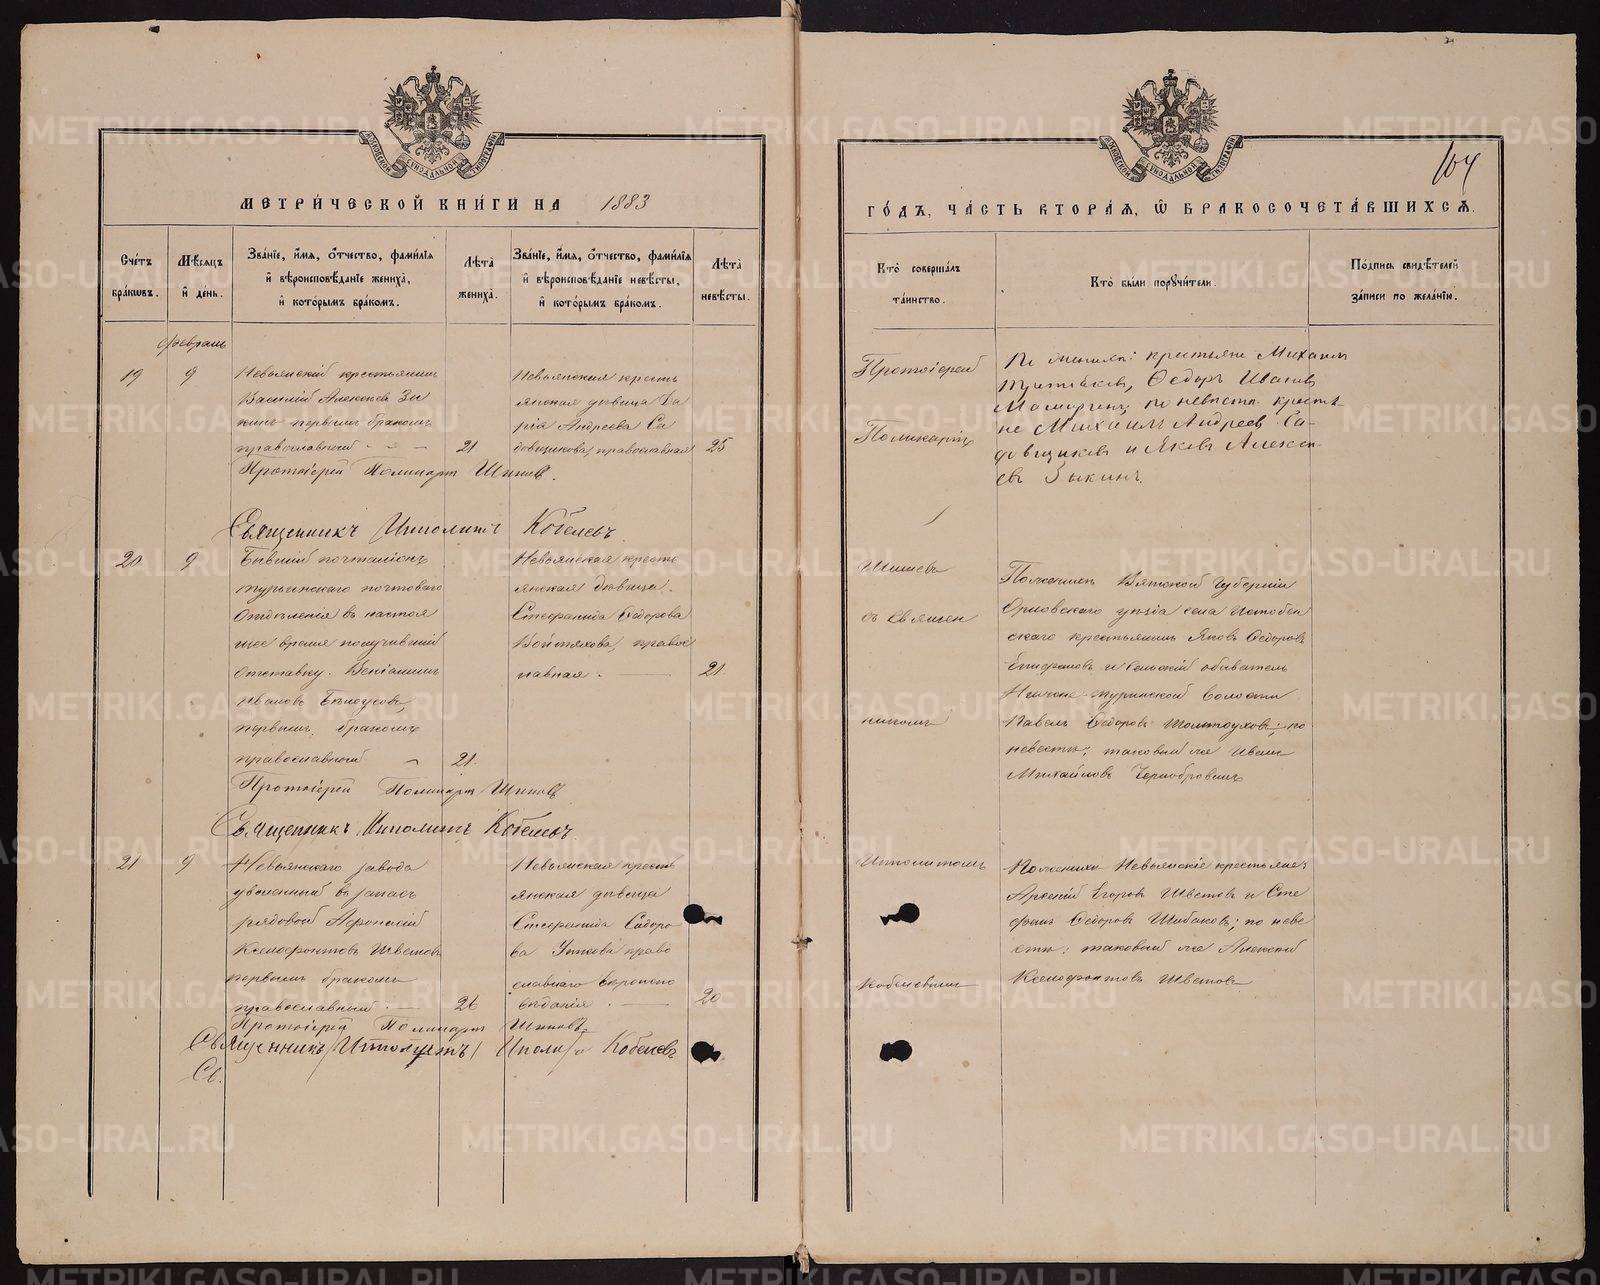 МЕТРИЧЕСКОЙ КНИГИ НА 1883
Счетъ браковъ.
Мѣсяцъ и день.
Званіе, имя, отчество, фамилія и вѣроисповѣданіе жениха, и которымъ бракомъ.
Лѣта жениха.
Званіе, имя, отчество, фамилія и вѣроисповѣданіе невѣсты, и которымъ бракомъ.
Лѣта невѣсты.
Февраль
19 9
Невьянскій крестьянинъ
Василій Алексѣевъ
первымъ бракомъ
православный 21
Невьянская кресть
янская дѣвица Да
рія Андреева Са
довщикова, православная 25
Протоіерей Поликарпъ
Священникъ Ипполитъ Кобелевъ
20 9
Бывшій почталіонъ
турьинскаго почтоваго
отдѣленія въ настоя
щее время получившій
отставку. Веніаминъ
Ивановъ Бѣлоусовъ,
первымъ бракомъ
православный 21.
Невьянская кресть
янская дѣвица
Стефанида Ѳедорова
Войтяхова, правос
лавная. 21
Протоіерей Поликарпъ
Священникъ Ипполитъ Кобелевъ.
21 9
Невьянскаго завода
уволенный въ запасъ
рядовой
Ксенофонтовъ Швецовъ
первымъ бракомъ
православный 26
Невьянская кресть
янская дѣвица
Стефанида Сидоро
ва право
славнаго вѣроиспо
вѣданія. 20
Протоіерей Поликарпъ
Священникъ Кобелевъ
Св.
104
ГОДЪ, ЧАСТЬ ВТОРАЯ, Ѡ БРАКОСОЧЕТАВШИХСЯ.
Кто совершалъ таинство.
Кто были поручители.
Подпись свидѣтелей записи по желанію.
Протоіерей
Поликарпъ
По женихѣ: крестьяне Михаилъ
Ѳедоръ Ивановъ
по невѣстѣ кресть
не Михаилъ Андреевъ Са-
довщиковъ и Яковъ Алексѣ
евъ Зыкинъ.
съ священ
никомъ
По женихѣ Вятской губерніи
Орловскаго уѣзда села Истобен
скаго крестьянинъ Яковъ Ѳедоровъ
Епифановъ и сельскій обыватель
Нижне-туринской волости
Павелъ Ѳедоровъ по
невѣстѣ: таковый же Иванъ
Михайловъ Чернобровинъ
Ипполитомъ
Кобелевымъ
По женихѣ Невьянскіе крестьяне:
Арсеній Егоровъ Швецовъ и Сте
фанъ Ѳедоровъ Шибаковъ; по невѣ
стѣ: таковый же Алексѣй
Ксенофонтовъ Швецовъ
METRIKI.GASO-URAL.RU